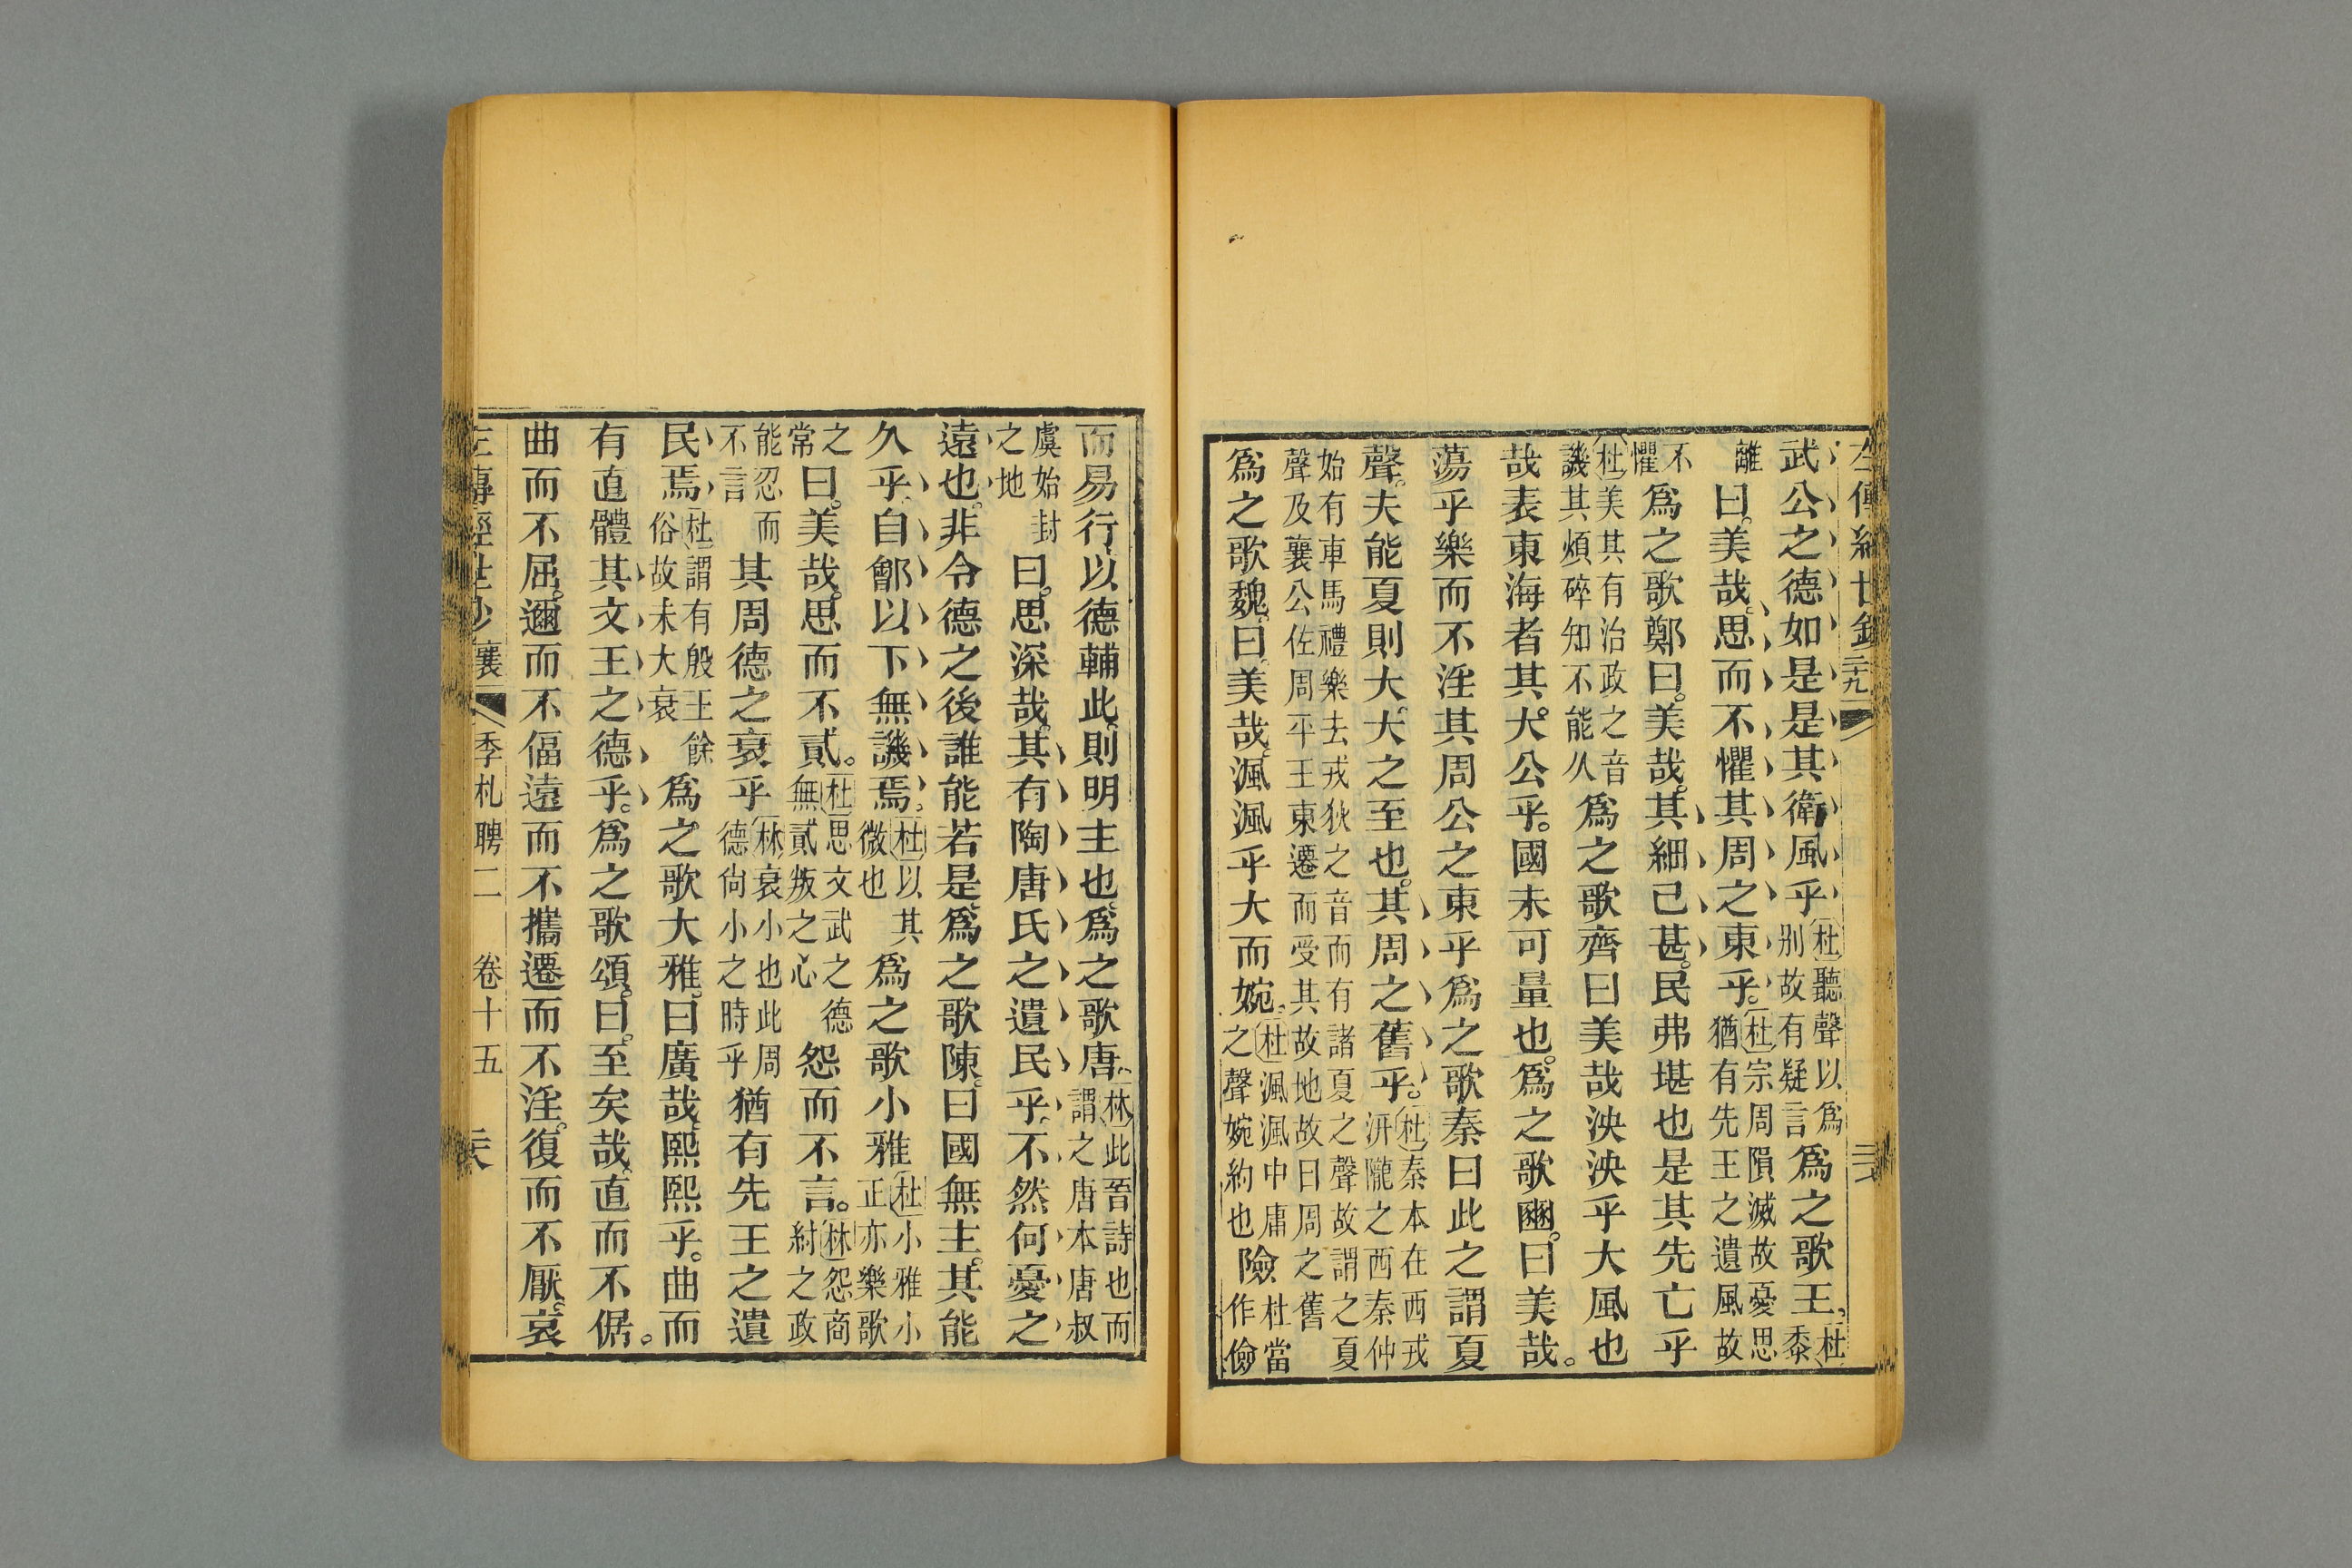 武公之德如是是其衛風乎杜聽聲以爲別故有疑言爲之歌王杜黍
離曰美哉思而不懼其周之東乎杜宗周隕滅故憂思猶有先王之遺風故
不懼爲之歌鄭曰美哉其細已甚民弗堪也是其先亡乎
杜美其有治政之音譏其煩碎知不能久爲之歌齊曰美哉泱泱乎大風也
哉表東海者其大公乎國未可量也爲之歌豳曰美哉
蕩乎樂而不淫其周公之東乎爲之歌秦曰此之謂夏
聲夫能夏則大大之至也其周之舊乎杜秦本在西戎汧隴之西秦仲
始有車馬禮樂去戎狄之音而有諸夏之聲故謂之夏聲及襄公佐周平王東遷而受其故地故曰周之舊
爲之歌魏曰美哉渢渢乎大而婉杜渢渢中庸之聲婉約也險杜當作儉
而易行以德輔此則明主也爲之歌唐林此晉詩也而謂之唐本唐叔
虞始封之地曰思深哉其有陶唐氏之遺民乎不然何憂之
遠也非令德之後誰能若是爲之歌陳曰國無主其能
久乎自鄶以下無譏焉杜以其微也爲之歌小雅杜小雅小正亦樂歌
之常曰美哉思而不貳杜思文武之德無貳叛之心怨而不言林怨商紂之政
能忍而不言其周德之衰乎林衰小也此周德尙小之時乎猶有先王之遺
民焉杜謂有殷王餘俗故未大衰爲之歌大雅曰廣哉熙熙乎曲而
有直體其文王之德乎爲之歌頌曰至矣哉直而不倨
曲而不屈邇而不偪遠而不攜遷而不淫復而不厭哀
襄 季札聘二 卷十五